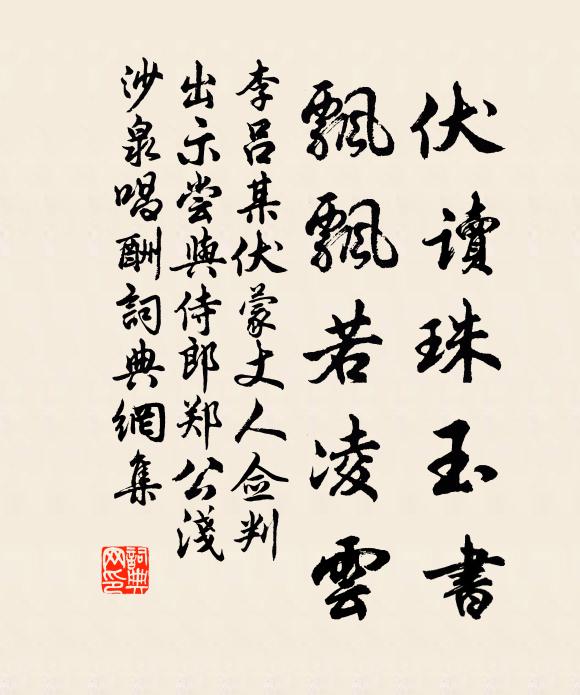 伏讀珠玉書
飄飄若凌雲
李呂某伏蒙丈人僉判
出示嘗與侍郎郑公淺
沙泉唱酬詞典網集
詞典网印